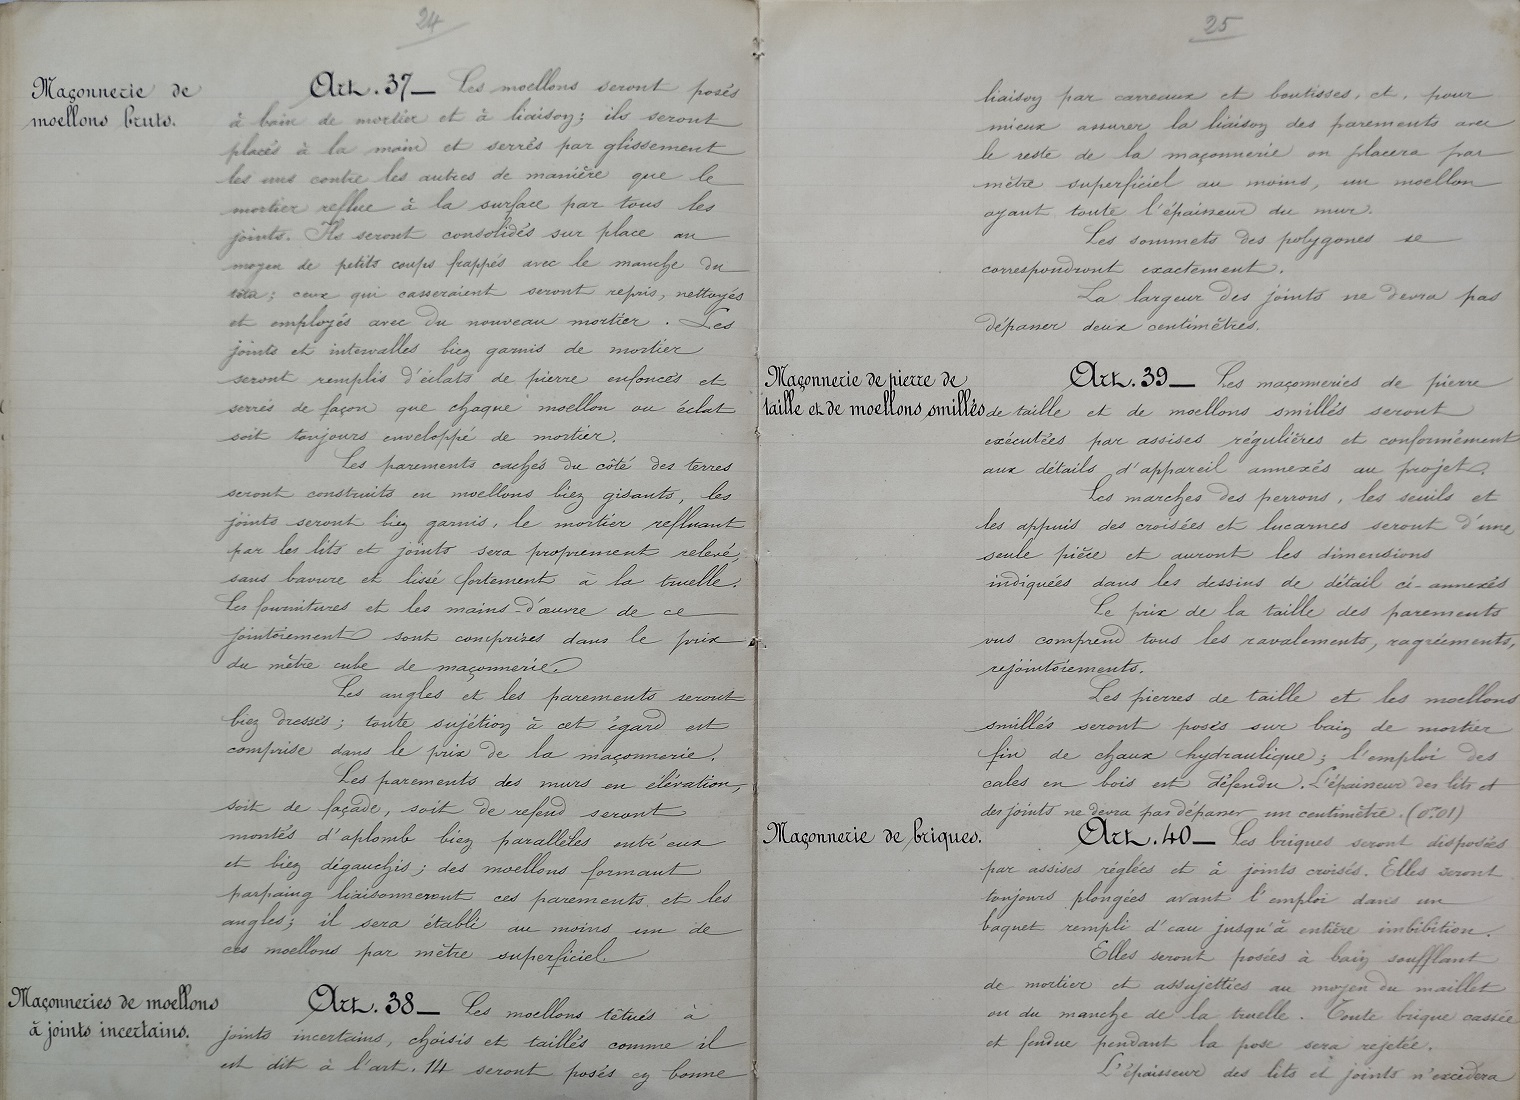 24
Maçonnerie de
moellons bruts.
Art. 37 — Les moellons seront posés
à bain de mortier et à liaison; ils seront
placés à la main et serrés par glissement
les uns contre les autres de manière que le
mortier reflue à la surface par tous les
joints. Ils seront consolidés sur place au
moyen de petits coups frappés avec le manche du
têtu; ceux qui casseraient seront repris, nettoyés
et employés avec du nouveau mortier. Les
joints et intervalles bien garnis de mortier
seront remplis d'éclats de pierre enfoncés et
serrés de façon que chaque moellon ou éclat
soit toujours enveloppé de mortier.
Les parements cachés du côté des terres
seront construits en moellons bien gisants, les
joints seront bien garnis, le mortier refluant
par les lits et joints sera proprement relevé,
sans bavure et lissé fortement à la truelle.
Les fournitures et les mains-d'œuvre de ce
jointoiement sont comprises dans le prix
du mètre cube de maçonnerie.
Les angles et les parements seront
bien dressés; toute sujétion à cet égard est
comprise dans le prix de la maçonnerie.
Les parements des murs en élévation,
soit de façade, soit de refend seront
montés d'aplomb bien parallèles entr'eux
et bien dégauchis; des moellons formant
parpaing liaisonneront ces parements et les
angles; il sera établi au moins un de
ces moellons par mètre superficiel.
Maçonneries de moellons
à joints incertains.
Art. 38 — Les moellons têtués à
joints incertains, choisis et taillés comme il
est dit à l'art. 14 seront posés en bonne
25
liaison par carreaux et boutisses, et, pour
mieux assurer la liaison des parements avec
le reste de la maçonnerie on placera par
mètre superficiel au moins, un moellon
ayant toute l'épaisseur du mur.
Les sommets des polygones se
correspondront exactement.
La largeur des joints ne devra pas
dépasser deux centimètres.
Maçonnerie de pierre de
taille et de moellons smillés
Art. 39 — Les maçonneries de pierre
de taille et de moellons smillés seront
exécutées par assises régulières et conformément
aux détails d'appareil annexés au projet.
Les marches des perrons, les seuils et
les appuis des croisées et lucarnes seront d'une
seule pièce et auront les dimensions
indiquées dans les dessins de détail ci-annexés
Le prix de la taille des parements
vus comprend tous les ravalements, ragréements,
rejointoiements.
Les pierres de taille et les moellons
smillés seront posés sur bain de mortier
fin de chaux hydraulique; l'emploi des
cales en bois est défendu. L'épaisseur des lits et
des joints ne devra pas dépasser un centimètre. (0m01)
Maçonnerie de briques.
Art. 40 — Les briques seront disposées
par assises réglées et à joints croisés. Elles seront
toujours plongées avant l'emploi dans un
baquet rempli d'eau jusqu'à entière imbibition.
Elles seront posées à bain soufflant
de mortier et assujetties au moyen du maillet
ou du manche de la truelle. Toute brique cassée
et fendue pendant la pose sera rejetée.
L'épaisseur des lits et joints n'excèdera